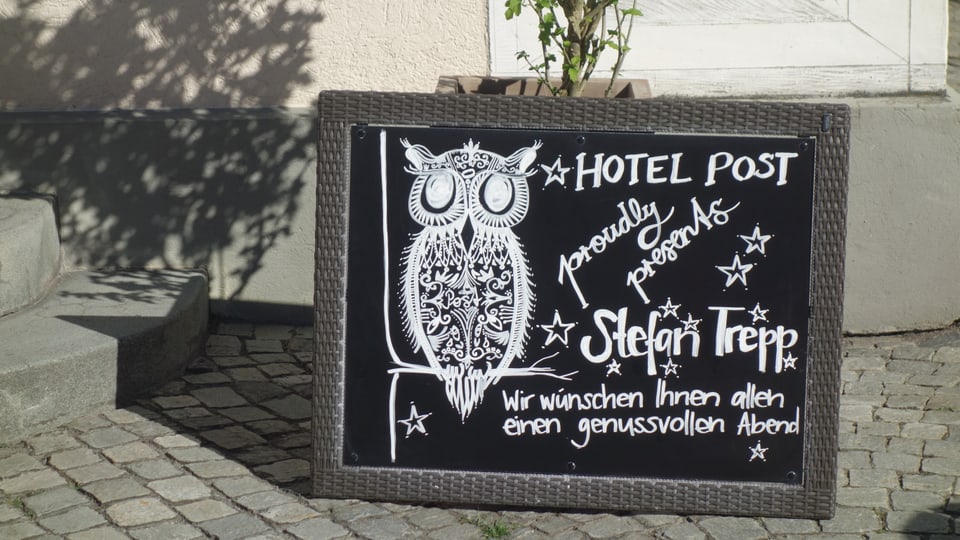 HOTEL POST
proudly
presents
Stefan Trepp
Wir wünschen Ihnen allen
einen genussvollen Abend
Post